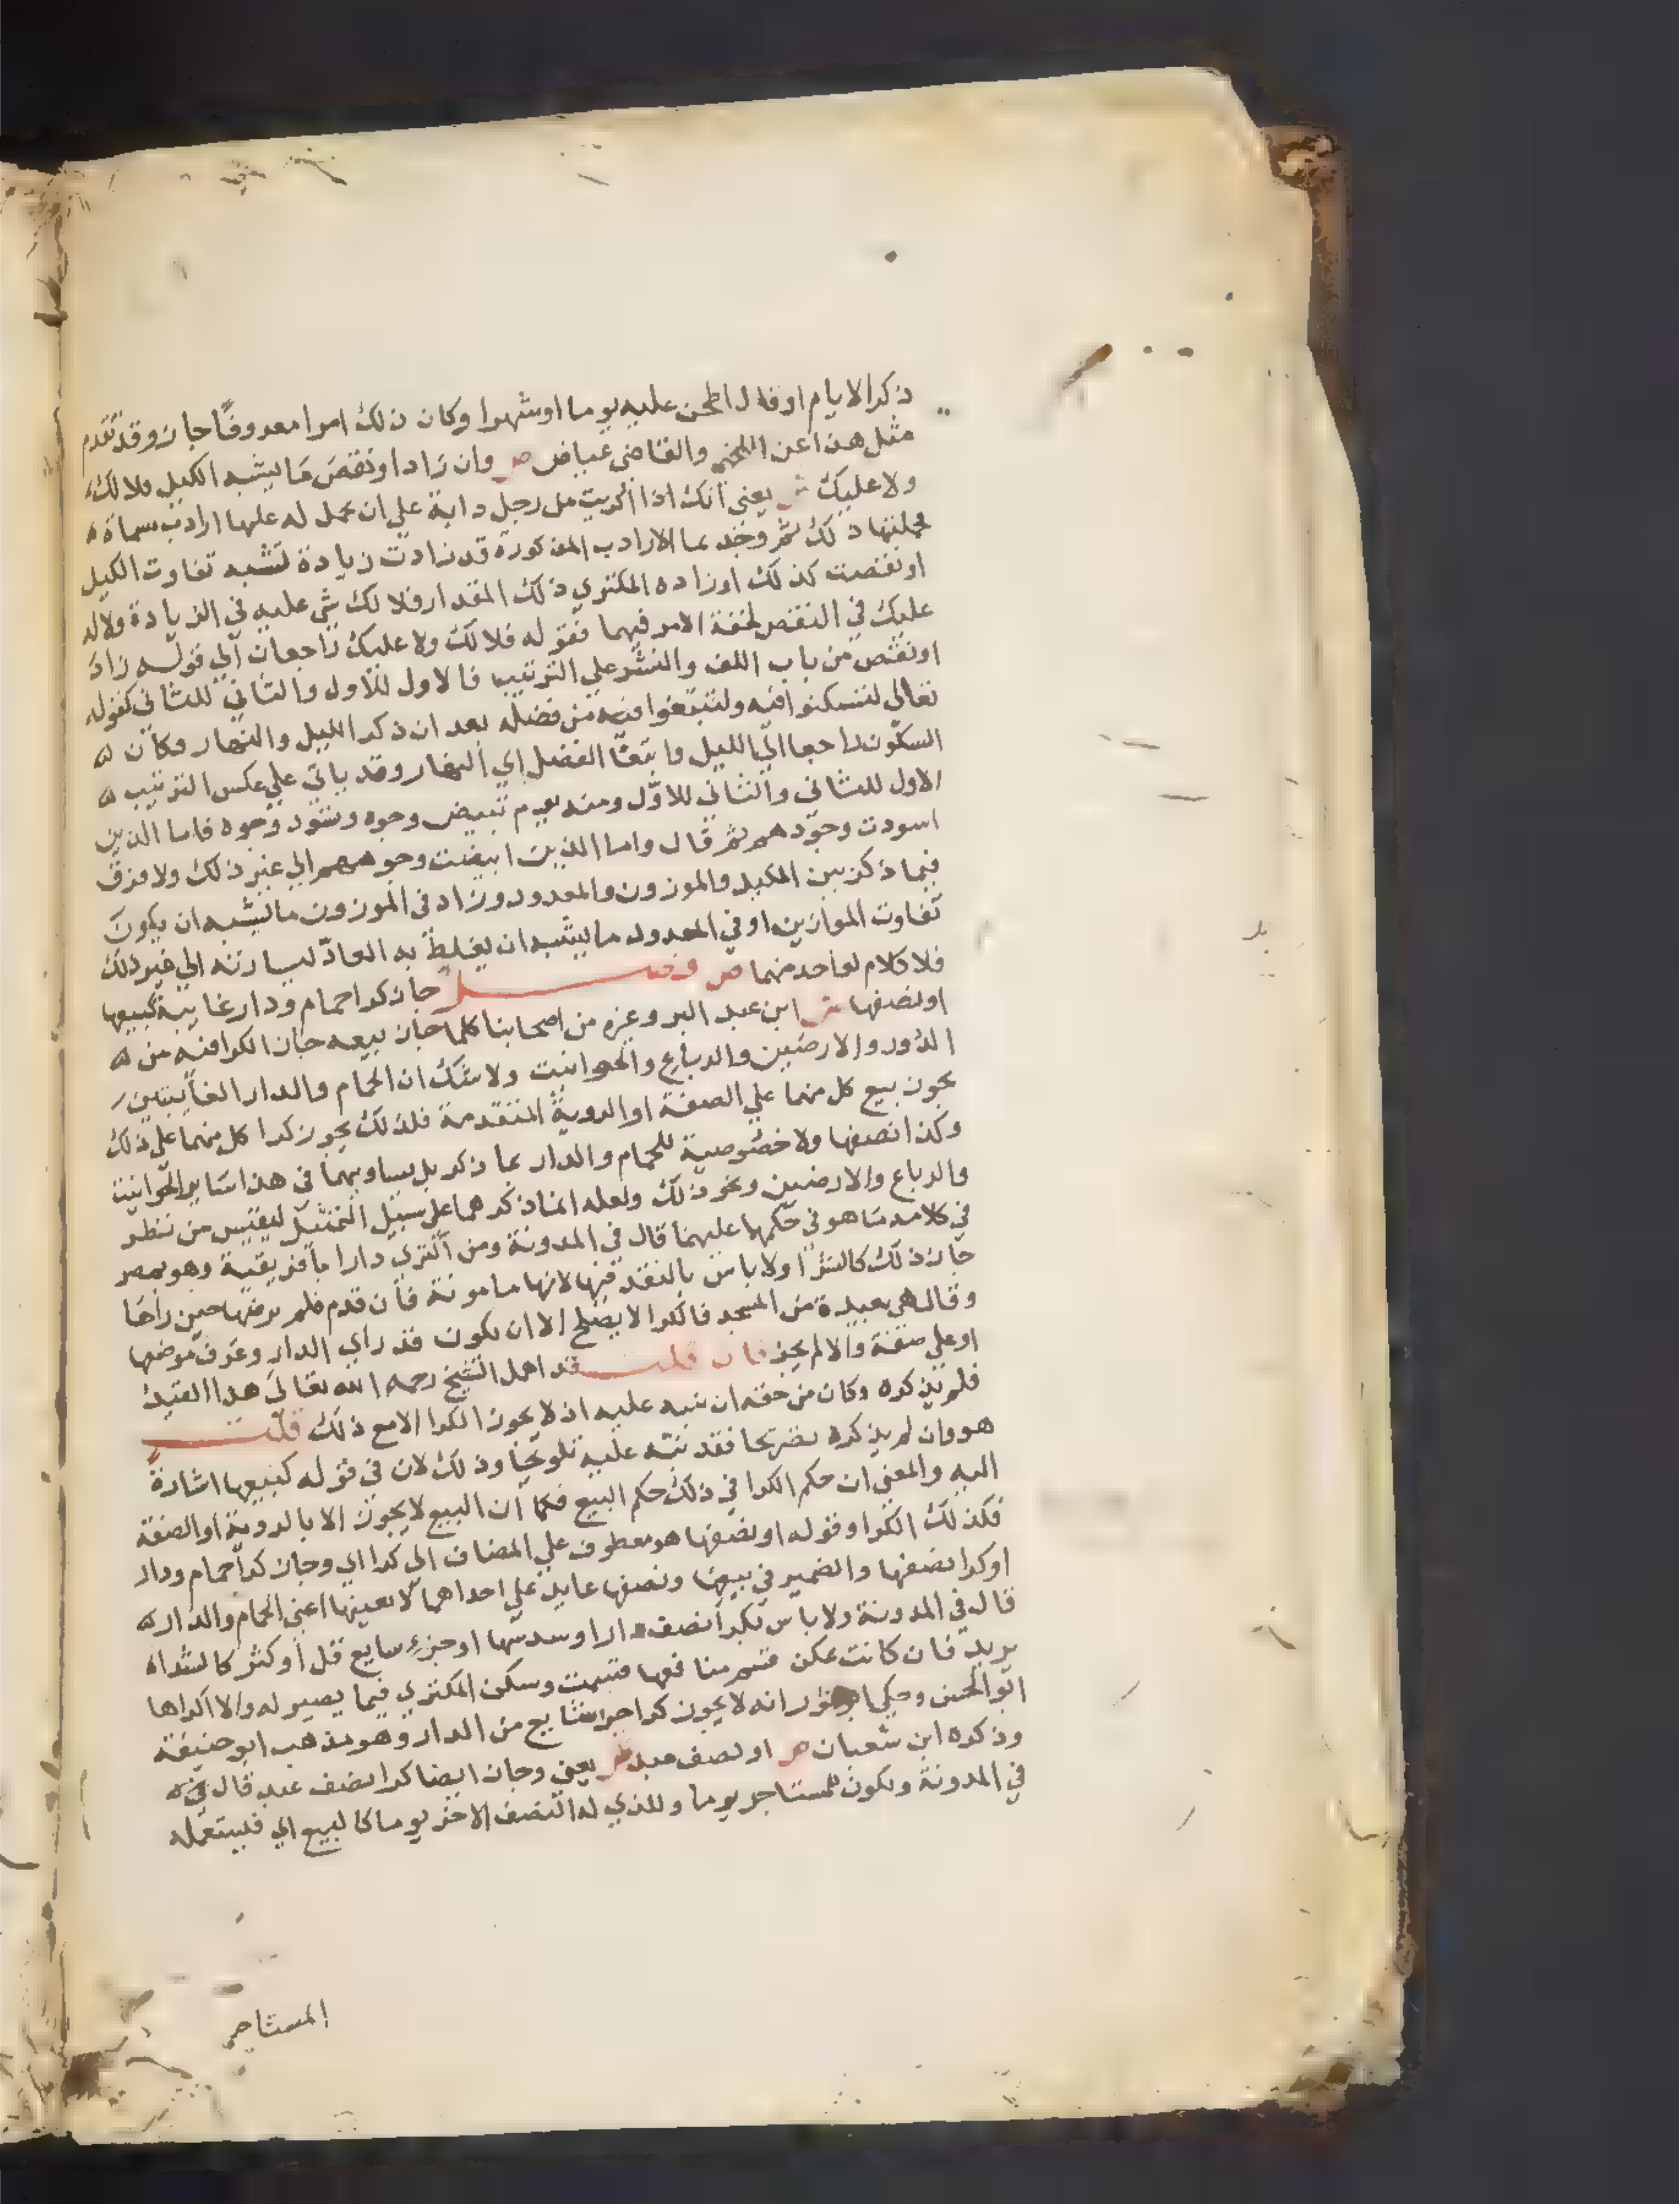 ذكر الايام او قال اطحن عليه يوما او شهرا وكان ذلك امرا معروفا جاز وقد تقدم
مثل هذا عن اللخمي والقاضي عياض ص وان زاد او نقص ما يشبه الكيل فلا لك
ولا عليك ش يعني انك اذا اكريت من رجل دابة علي ان يحمل له عليها ارادب مسماة
فحملتها ذلك ثم وجد ما الارادب المذكورة قد زادت زيادة تشبه تفاوت الكيل
او نقصت كذلك او زاده المكتري ذلك المقدار فلا لك شي عليه في الزيادة ولا له
عليك في النقص لخفة الامر فيهما فقوله فلا لك ولا عليك راجعان الي قوله زاد
او نقص من باب اللف والنشر علي الترتيب فالاول للاول والثاني للثاني كقوله
تعالي لتسكنوا فيه ولتبتغوا فيه من فضله بعد ان ذكر الليل والنهار فكان
السكون راجعا الي الليل وابتغا الفضل اي النهار وقد ياتي علي عكس الترتيب
الاول للثاني والثاني للاول ومنه يوم تبيض وجوه وتسود وجوه فاما الذين
اسودت وجوههم ثم قال واما الذين ابيضت وجوههم الي غير ذلك ولا فرق
فيما ذكر بين المكيل والموزون والمعدود وزاد في الموزون ما يشبه ان يكون
تفاوت الموازين او في المعدود ما يشبه ان يغلط به العاد ليسارته الي غير ذلك
فلا كلام لواحد منهما ص فصل جاز كرا حمام ودار غايبة كبيعها
او نصفها ش ابن عبد البر وغيره من اصحابنا كلما جاز بيعه جاز الكرا فيه من
الدور والارضين والرباع والحوانيت ولا شك ان الحمام والدار الغايبتين
يجوز بيع كل منهما علي الصفة او الروية المتقدمة فلذلك يجوز كرا كل منهما علي ذلك
وكذا نصفها ولا خصوصية للحمام والدار بما ذكر بل يساويهما في هذا ساير الحوانيت
والرباع والارضين ونحو ذلك ولعله انما ذكرهما علي سبيل التمثيل ليقيس من نظر
في كلامه ما هو في حكمها عليهما قال في المدونة ومن اكتري دارا بافريقية وهو بمصر
جاز ذلك كالشرا ولا باس بالنقد فيها لانها مامونة فان قدم فلم يرضها حين راها
وقال هي بعيدة من المسجد فالكرا لا يصلح الا ان يكون قد راي الدار وعرف موضعها
او علي صفة والا لم يجز فان قلت قد اهمل الشيخ رحمه الله تعالي هذا القيد
فلم يذكره وكان من حقه ان ينبه عليه اذ لا يجوز الكرا الا مع ذلك قلت
هو وان لم يذكره تصريحا فقد نبه عليه تلويحا وذلك لان في قوله كبيعها اشارة
اليه والمعني ان حكم الكرا في ذلك حكم البيع فكما ان البيع لا يجوز الا بالروية او الصفة
فكذلك الكرا وقوله او نصفها هو معطوف علي المضاف الي كرا اي وجاز كرا حمام ودار
او كرا نصفها والضمير في بيعها ونصفها عايد علي احداهما لا بعينها اعني الحمام والدار
قال في المدونة ولا باس بكرا نصف دار او سدسها او جزء سايع قل او كثر كالشراء
يريد فان كانت يمكن قسم منافعها قسمت وسكن المكتري فيما يصير له والا اكراها
ابو الحسن وحكي انه لا يجوز كرا جز شايع من الدار وهو مذهب ابو حنيفة
وذكره ابن شعبان ص او نصف عبد ش يعني وجاز ايضا كرا نصف عبد قال في
في المدونة ويكون للمستاجر يوما وللذي له النصف الاخر يوما كالبيع اي فيستعمله
المستاجر